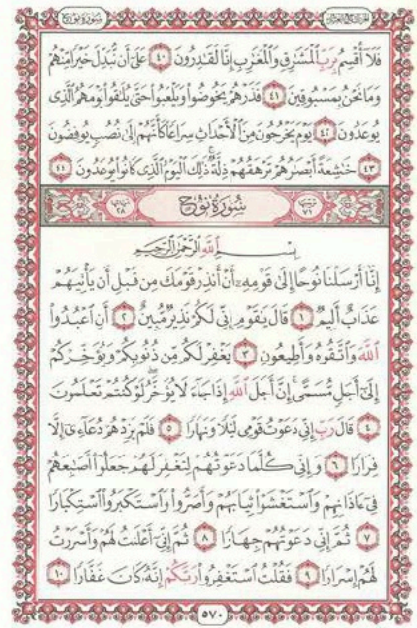 سُورَةُ نُوح
الجزء التاسع والعشرون
فَلَا أُقْسِمُ بِرَبِّ الْمَشَارِقِ وَالْمَغَارِبِ إِنَّا لَقَادِرُونَ ٤٠ عَلَىٰ أَن نُّبَدِّلَ خَيْرًا مِّنْهُمْ
وَمَا نَحْنُ بِمَسْبُوقِينَ ٤١ فَذَرْهُمْ يَخُوضُوا وَيَلْعَبُوا حَتَّىٰ يُلَاقُوا يَوْمَهُمُ الَّذِي
يُوعَدُونَ ٤٢ يَوْمَ يَخْرُجُونَ مِنَ الْأَجْدَاثِ سِرَاعًا كَأَنَّهُمْ إِلَىٰ نُصُبٍ يُوفِضُونَ
٤٣ خَاشِعَةً أَبْصَارُهُمْ تَرْهَقُهُمْ ذِلَّةٌ ذَٰلِكَ الْيَوْمُ الَّذِي كَانُوا يُوعَدُونَ ٤٤
ترتيبها ٧١ سُورَةُ نُوح آياتها ٢٨
بِسْمِ اللَّهِ الرَّحْمَٰنِ الرَّحِيمِ
إِنَّا أَرْسَلْنَا نُوحًا إِلَىٰ قَوْمِهِ أَنْ أَنذِرْ قَوْمَكَ مِن قَبْلِ أَن يَأْتِيَهُمْ
عَذَابٌ أَلِيمٌ ١ قَالَ يَا قَوْمِ إِنِّي لَكُمْ نَذِيرٌ مُّبِينٌ ٢ أَنِ اعْبُدُوا
اللَّهَ وَاتَّقُوهُ وَأَطِيعُونِ ٣ يَغْفِرْ لَكُم مِّن ذُنُوبِكُمْ وَيُؤَخِّرْكُمْ
إِلَىٰ أَجَلٍ مُّسَمًّى إِنَّ أَجَلَ اللَّهِ إِذَا جَاءَ لَا يُؤَخَّرُ لَوْ كُنتُمْ تَعْلَمُونَ
٤ قَالَ رَبِّ إِنِّي دَعَوْتُ قَوْمِي لَيْلًا وَنَهَارًا ٥ فَلَمْ يَزِدْهُمْ دُعَائِي إِلَّا
فِرَارًا ٦ وَإِنِّي كُلَّمَا دَعَوْتُهُمْ لِتَغْفِرَ لَهُمْ جَعَلُوا أَصَابِعَهُمْ
فِي آذَانِهِمْ وَاسْتَغْشَوْا ثِيَابَهُمْ وَأَصَرُّوا وَاسْتَكْبَرُوا اسْتِكْبَارًا
٧ ثُمَّ إِنِّي دَعَوْتُهُمْ جِهَارًا ٨ ثُمَّ إِنِّي أَعْلَنتُ لَهُمْ وَأَسْرَرْتُ
لَهُمْ إِسْرَارًا ٩ فَقُلْتُ اسْتَغْفِرُوا رَبَّكُمْ إِنَّهُ كَانَ غَفَّارًا ١٠
٥٧٠